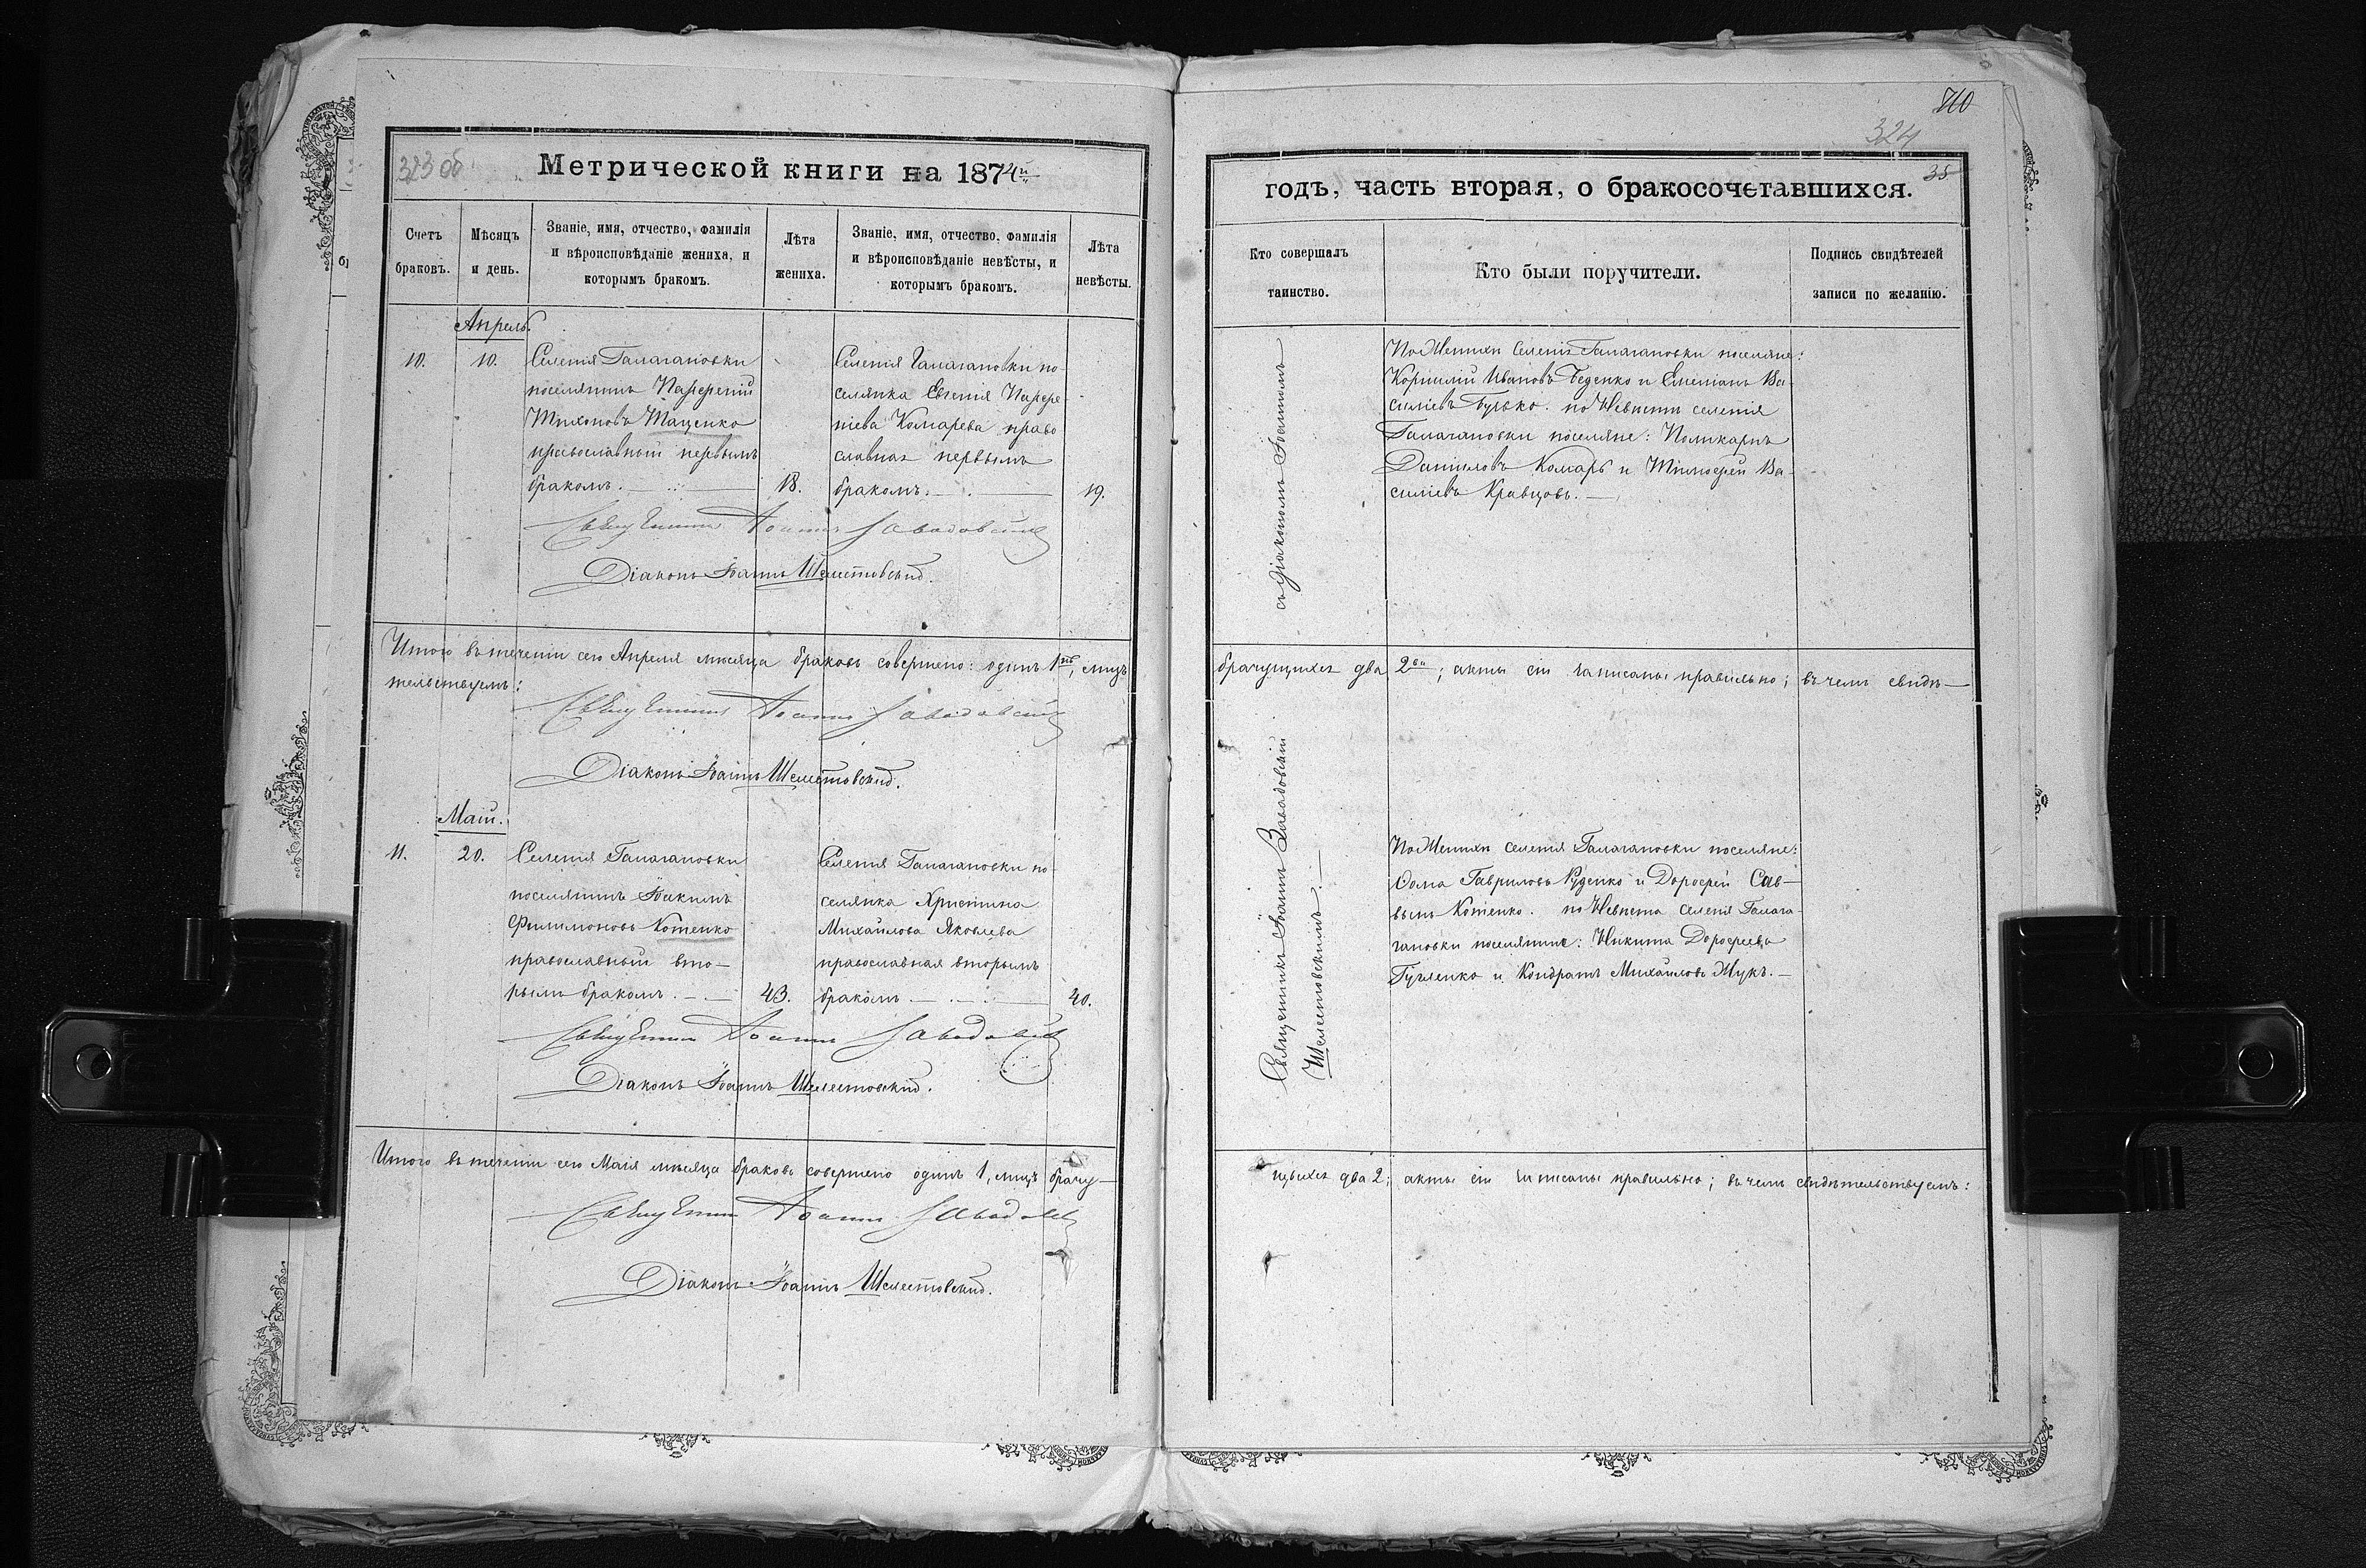 323 об
Метрической книги на 1874й
Счетъ браковъ.
Мѣсяцъ и день.
Званіе, имя, отчество, фамилія и вѣроисповѣданіе жениха, и которымъ бракомъ.
Лѣта жениха.
Званіе, имя, отчество, фамилія и вѣроисповѣданіе невѣсты, и которымъ бракомъ.
Лѣта невѣсты.
Апрель.
10.
10.
Селенія Галагановки
поселянинъ Парфеній
Тихоновъ Таценко
православный первымъ
бракомъ.
18.
Селенія Галагановки по-
селянка Евгенія Парфе-
ніева Комарева право
славная первымъ
бракомъ.
19.
Священникъ Іоаннъ Завадовскій
Діаконъ Іоаннъ Шелестовскій.
Итого въ теченіи сего Апреля мѣсяца браковъ совершено: одинъ 1, лицъ
тельствуемъ:
Священникъ Іоаннъ Завадовскій
Діаконъ Іоаннъ Шелестовскій.
Маій.
11.
20.
Селенія Галагановки
поселянинъ Іоакимъ
Филимоновъ Котенко
православный вто-
рымъ бракомъ.
43.
Селенія Галагановки по-
селянка Христина
Михайлова Яковлева
православная вторымъ
бракомъ
40.
Священникъ Іоаннъ Завадовскій
Діаконъ Іоаннъ Шелестовскій.
Итого въ теченіи сего Маія мѣсяца браковъ совершено одинъ 1, лицъ брачу-
Священникъ Іоаннъ Завадовскій
Діаконъ Іоаннъ Шелестовскій.
324
35
годъ, часть вторая, о бракосочетавшихся.
Кто совершалъ таинство.
Кто были поручители.
Подпись свидѣтелей записи по желанію.
Священникъ Іоаннъ Завадовскій съ Діакономъ Іоанномъ
Шелестовскимъ.
По Женихѣ селенія Галагановки поселяне:
Корнилій Ивановъ Беденко и Емеліанъ Ва-
силіевъ Булько. по Невѣстѣ селенія
Галагановки поселяне: Поликарпъ
Даниловъ Комаръ и Тимофей Ва-
силіевъ Кравцовъ.
брачущихся два 2; акты сіи записаны правильно; въ чемъ свидѣ-
По Женихѣ селенія Галагановки поселяне:
Фома Гавриловъ Руденко и Дорофей Сав-
вынъ Котенко. по Невѣста селенія Галага-
гановки поселяние: Никита Дорофеева
Гугленко и Кондратъ Михайловъ Жукъ.
щихся два 2; акты сіи записаны правильно; въ чемъ свидѣтельствуемъ: